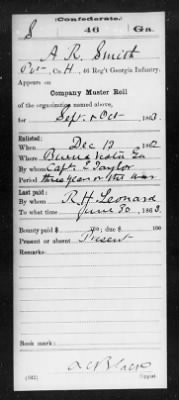 (Confederate.)
S 46 Ga.
A R Smith
Pvt, Co. H, 46 Reg't Georgia Infantry.
Appears on
Company Muster Roll
of the organization named above,
for Sept & Oct, 1863.
Enlisted:
When Dec 13, 1862
Where Buena Vista Ga
By whom Capt. Taylor
Period three years or the war
Last paid:
By whom R. H. Leonard
To what time June 30, 1863.
Bounty paid $ ; due $ 100
Present or absent Present
Remarks:
Book mark:
(642)
Copyist.